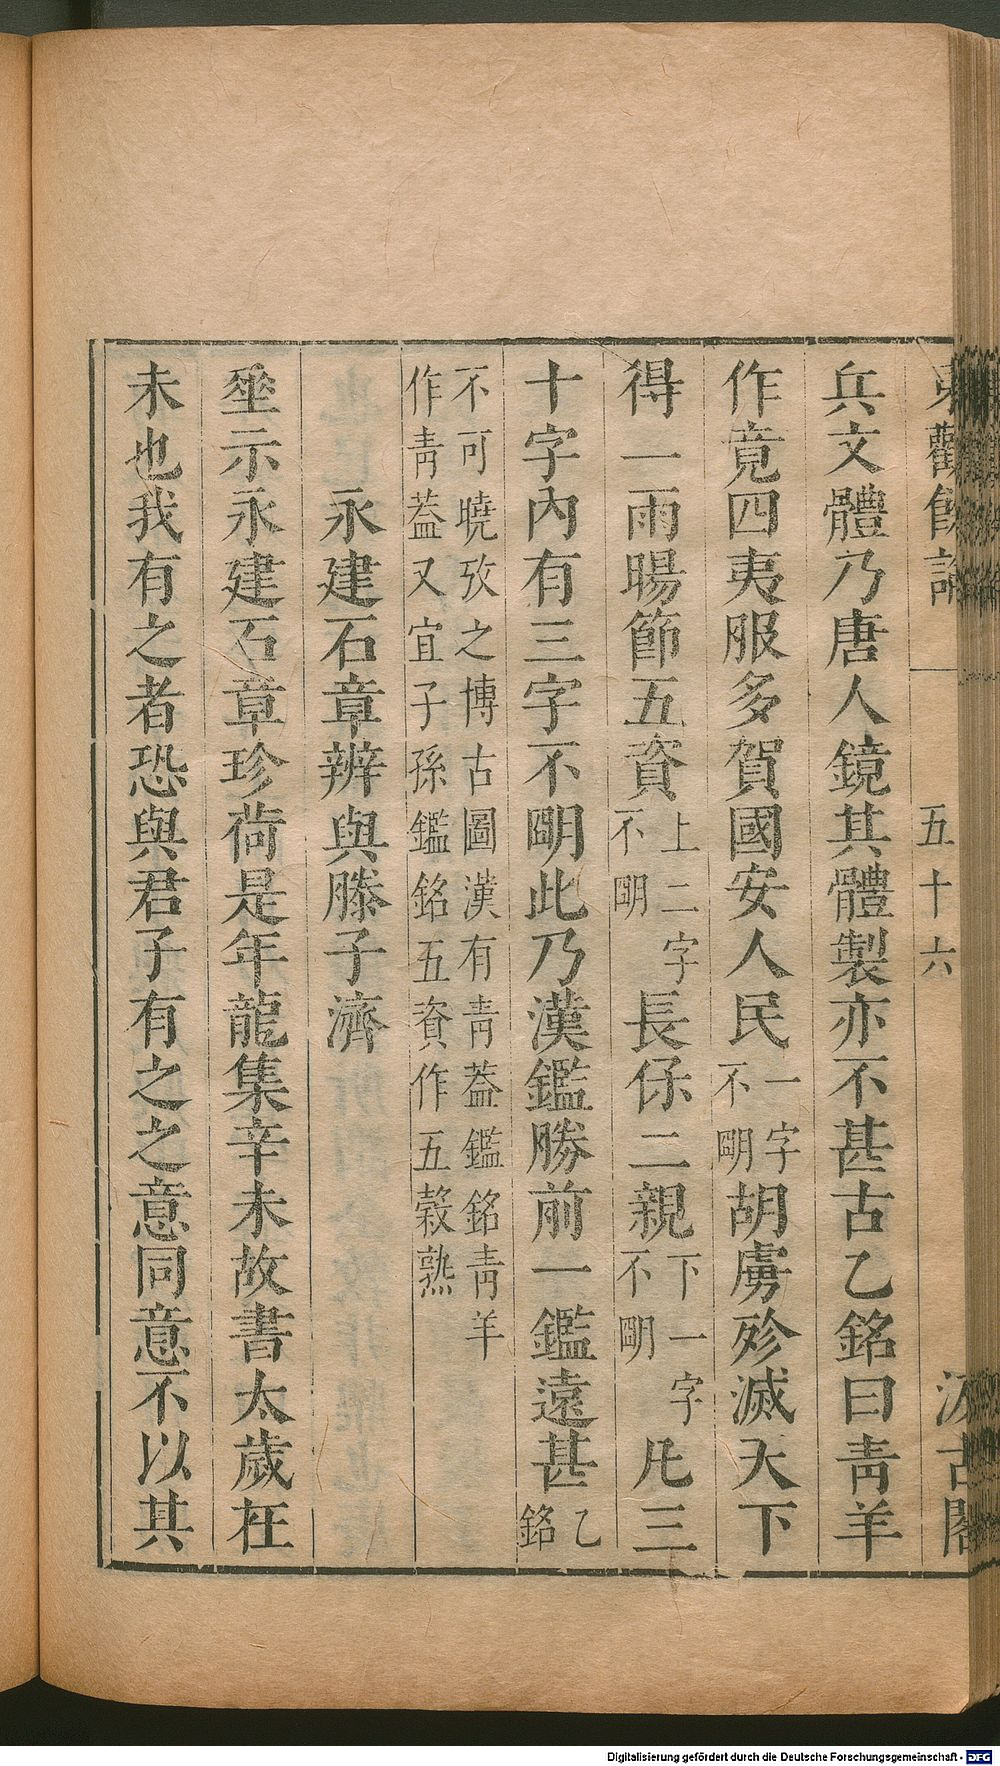 東觀餘論 五十六 汲古閣
兵文體乃唐人鏡其體製亦不甚古乙銘曰靑羊
作竟四夷服多賀國安人民一字不朙胡虜殄滅天下
得一雨暘節五資上二字不朙長保二親下一字不朙凡三
十字內有三字不朙此乃漢鑑勝前一鑑遠甚乙銘
不可曉攷之博古圖漢有靑葢鑑銘靑羊
作靑葢又宜子孫鑑銘五資作五穀熟
永建石章辨與滕子濟
埀示永建石章珍荷是年龍集辛未故書太歲在
未也我有之者恐與君子有之之意同意不以其
Digitalisierung gefördert durch die Deutsche Forschungsgemeinschaft - DFG